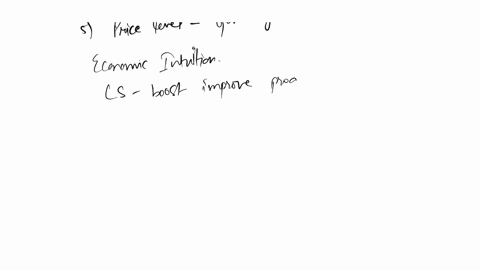 5) Price level -
Economic Intuition.
LS - boost improve